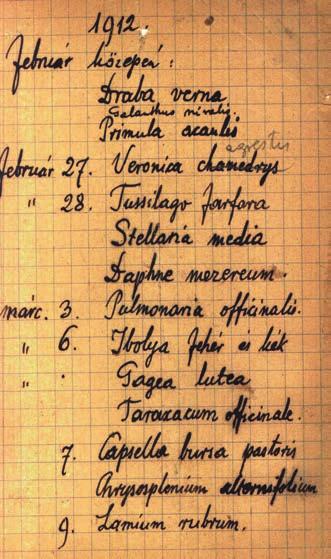 1912.
Február közepén:
Draba verna
Galanthus nivalis.
Primula acaulis
agrestis
Február 27. Veronica chamedrys
" 28. Tussilago farfara
Stellaria media
Daphne mezereum.
márc. 3. Pulmonaria officinalis.
" 6. Ibolya fehér és kék
" . Gagea lutea
Taraxacum officinale.
7. Capsella bursa pastoris
Chrysosplenium alternifolium
9. Lamium rubrum.